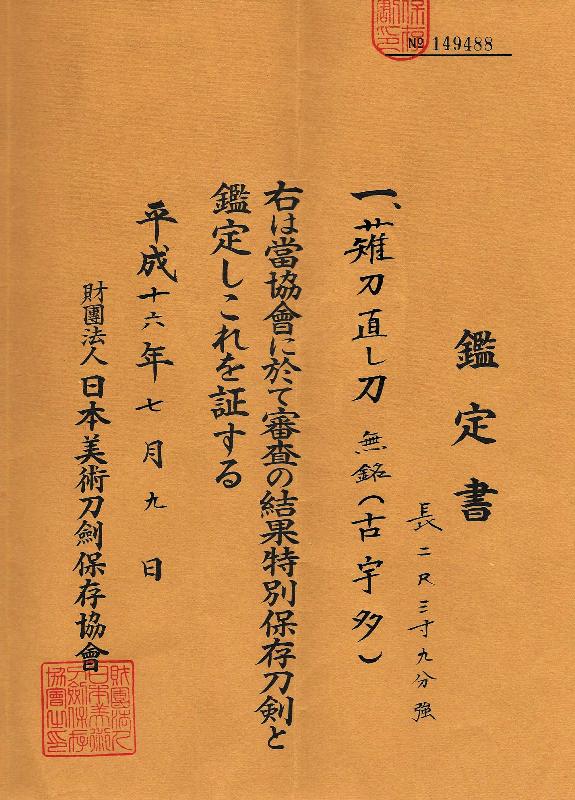 № 149488
鑑定書
長二尺三寸九分強
一、薙刀直し刀 無銘（古宇多）
右は當協會に於て審査の結果特別保存刀剣と
鑑定しこれを証する
平成十六年七月九日
財團法人 日本美術刀劍保存協會
財團法人
日本美術
刀劍保存
協會之印